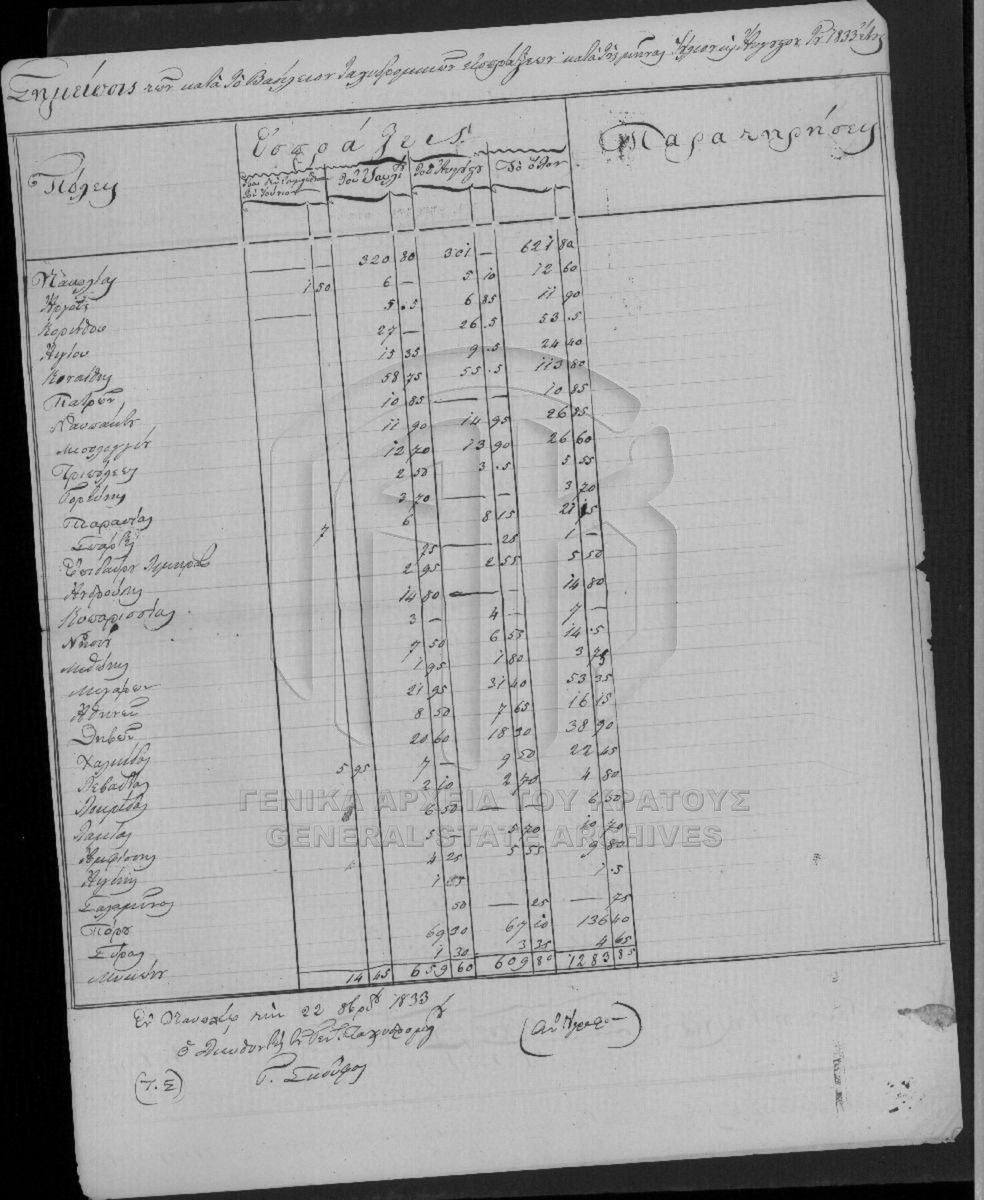 Σημείωσις τῶν κατὰ τὸ Βασίλειον ταχυδρομικῶν εἰσπράξεων κατὰ τοὺς μῆνας Ἰούλιον καὶ Αὔγουστον τοῦ 1833 ἔτους
Πόλεις
Εἰσπράξεις
Παρατηρήσεις
τοῦ Ἰουνίου
τοῦ Ἰουλίου
τοῦ Αὐγούστου
Τὸ ὅλον
Ναυπλίας — — 320 80 301 — 621 80
Ἄργους 1 50 6 — 5 10 12 60
Κορίνθου — 5 .5 6 85 11 90
Αἰγίου 27 — 26 .5 53 .5
15 35 9 .5 24 40
Πατρῶν 58 75 55 .5 113 80
Ναυπάκτου 10 85 — — 10 85
Μεσολογγίου 11 90 14 95 26 85
Τριπόλεως 12 70 13 90 26 60
Γορτύνης 2 50 3 .5 5 55
3 70 — — 3 70
Σπάρτης 7 6 8 15 21 15
Ἐπιδαύρου Λιμηρᾶς 75 — 25 1 —
Ἀνδρούσης 2 95 2 55 5 50
Κυπαρισσίας 14 80 — — 14 80
3 — 4 — 7 —
Μεθώνης 7 50 6 55 14 .5
Μεγάρων 1 95 1 80 3 75
Ἀθηνῶν 21 95 31 40 53 35
Θηβῶν 8 50 7 65 16 15
Χαλκίδος 20 60 18 30 38 90
Λεβαδίας 5 95 7 — 9 50 22 45
Λοκρίδος 2 10 2 70 4 80
Λαμίας 6 50 — — 6 50
Ἀμφίσσης 5 — 5 70 10 70
Αἰγίνης 4 25 5 55 9 80
Σαλαμῖνος 1 .5
Πόρου 50 — 25 — 75
Σύρας 69 30 67 10 136 40
Μυκόνου 1 30 3 35 4 65
14 45 659 60 609 80 1283 85
Ἐν Ναυπλίῳ τὴν 22 8βρίου 1833
ὁ Διευθυντὴς τῶν Γεν. Ταχυδρομ
(Τ.Σ)
Γ. Σκούφος
ΓΕΝΙΚΑ ΑΡΧΕΙΑ ΤΟΥ ΚΡΑΤΟΥΣ
GENERAL STATE ARCHIVES